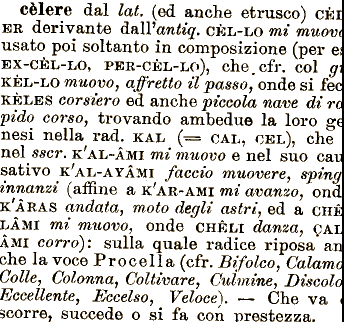 cèlere dal lat. (ed anche etrusco) CÈL
ER derivante dall'antiq. CÈL-LO mi muovo
usato poi soltanto in composizione (per es
EX-CÈL-LO, PER-CÈL-LO), che cfr. col g
KÈL-LO muovo, affretto il passo, onde si fec
KÈLES corsiero ed anche piccola nave di ra
pido corso, trovando ambedue la loro ge
nesi nella rad. KAL (= CAL, CEL), che
nel sscr. K'AL-ÂMI mi muovo e nel suo cau
sativo K'AL-AYÂMI faccio muovere, sping
innanzi (affine a K'AR-AMI mi avanzo, ond
K'ÂRAS andata, moto degli astri, ed a CHÊ
LÂMI mi muovo, onde CHÊLI danza, ÇAL
ÂMI corro): sulla quale radice riposa an
che la voce Procella (cfr. Bifolco, Calamo
Colle, Colonna, Coltivare, Culmine, Discolo
Eccellente, Eccelso, Veloce). — Che va
scorre, succede o si fa con prestezza.